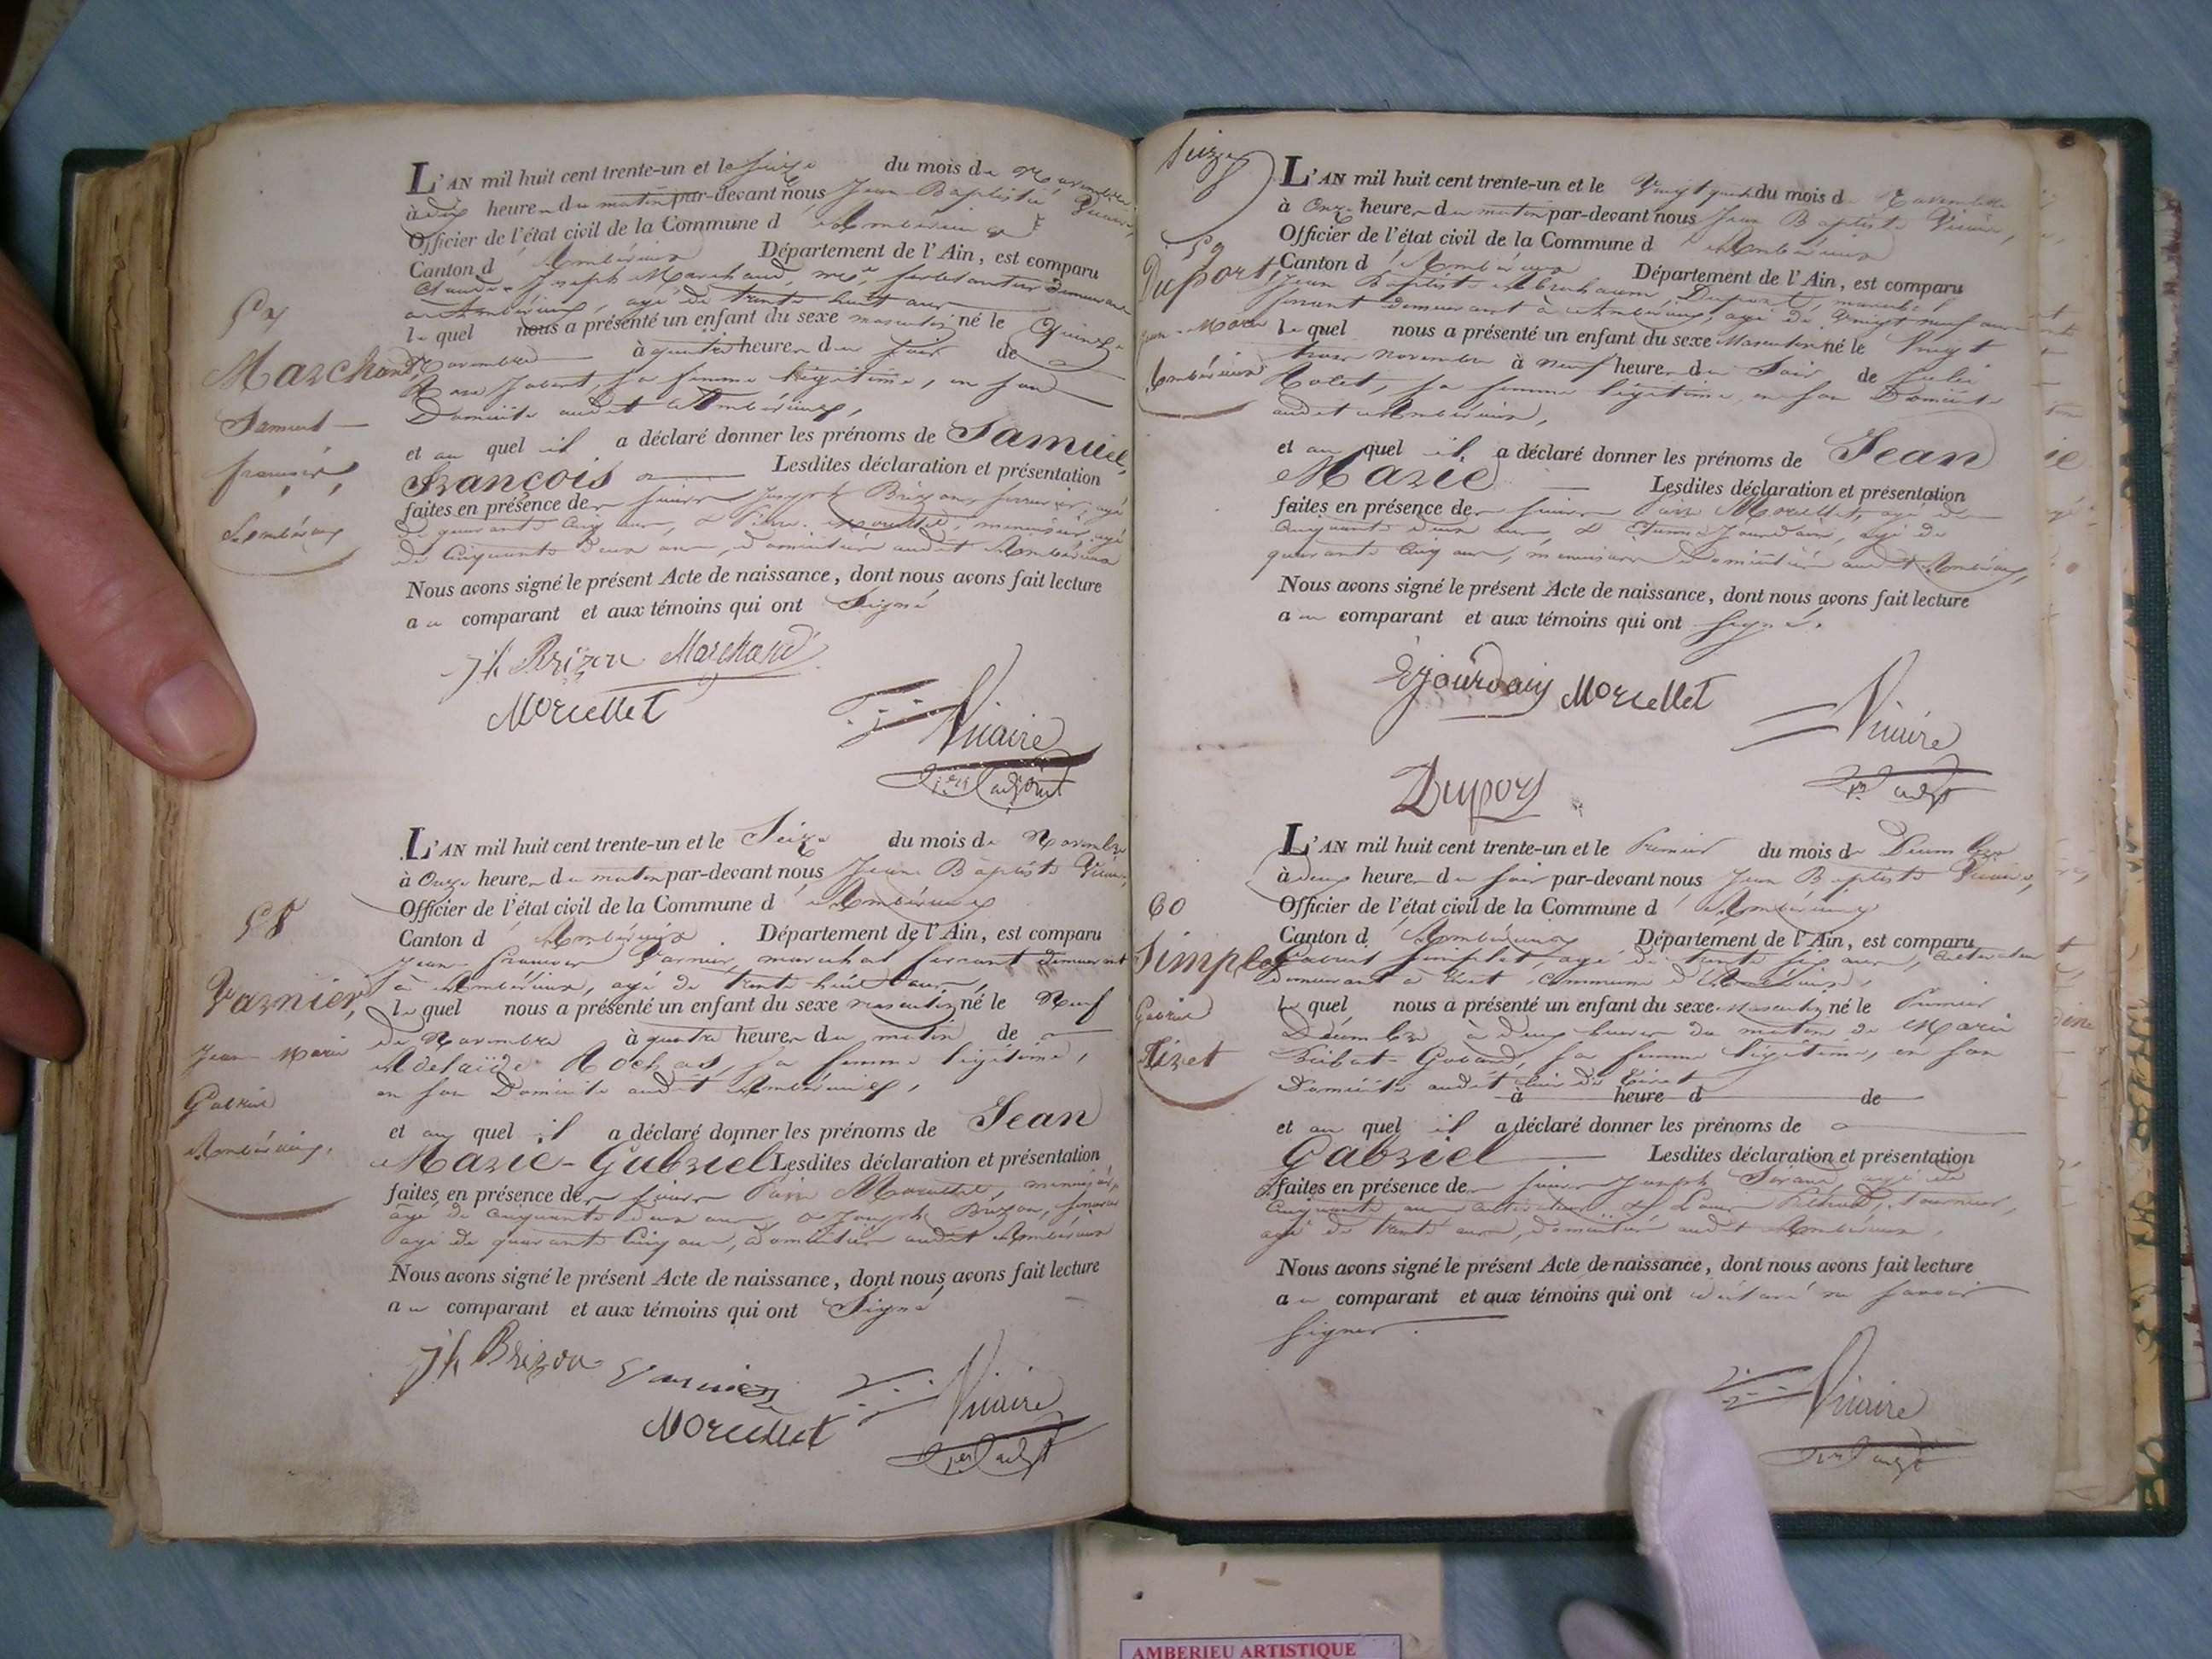 57
Marchand,
Samuel
françois,
Ambérieux
L'AN mil huit cent trente-un et le seize du mois de Novembre
à dix heures du matin par-devant nous Jean Baptiste Vicaire,
Officier de l'état civil de la Commune d'Ambérieux
Canton d'Ambérieux Département de l'Ain, est comparu
Claude Joseph Marchand, demeurant
à Ambérieux, agé de trente huit ans
lequel nous a présenté un enfant du sexe masculin né le Quinze
Novembre à quatre heures du soir de
sa femme légitime, en son
Domicile audit Ambérieux,
et auquel il a déclaré donner les prénoms de Samuel,
François Lesdites déclaration et présentation
faites en présence de sieurs Joseph Brizon, serrurier, agé
de quarante cinq ans, & Pierre Morcellet, menuisier, agé
de Cinquante deux ans, domiciliés audit Ambérieux
Nous avons signé le présent Acte de naissance, dont nous avons fait lecture
au comparant et aux témoins qui ont Signé
Jh Brizon Marchand
Morcellet
Vicaire
1er adjoint
58
Varnier,
Jean-Marie
Gabriel
Ambérieux.
L'AN mil huit cent trente-un et le Seize du mois de Novembre
à Onze heures du matin par-devant nous Jean Baptiste Vicaire,
Officier de l'état civil de la Commune d'Ambérieux
Canton d'Ambérieux. Département de l'Ain, est comparu
Jean François Varnier, marechal ferrant demeurant
à Ambérieux, agé de trente-huit ans,
lequel nous a présenté un enfant du sexe masculin né le Neuf
de Novembre à quatre heures du matin de
Adelaïde Rochas, sa femme légitime,
en son Domicile audit Ambérieux,
et auquel il a déclaré donner les prénoms de Jean
Marie-Gabriel Lesdites déclaration et présentation
faites en présence de sieurs Pierre Morcellet, menuisier,
âgé de cinquante deux ans, & Joseph Brizon, serrurier
agé de quarante Cinq ans, domiciliés audit Ambérieux
Nous avons signé le présent Acte de naissance, dont nous avons fait lecture
au comparant et aux témoins qui ont Signé
Jh Brizon Varnier
Morcellet
Vicaire
1er adjt
Seize
59
Duport,
Jean-Marie
Ambérieux
L'AN mil huit cent trente-un et le Vingt quatre du mois d Novembre
à Onze heures du matin par-devant nous Jean Baptiste Vicaire,
Officier de l'état civil de la Commune d'Ambérieux
Canton d'Ambérieux Département de l'Ain, est comparu
Jean Baptiste Abraham Duport, maréchal
ferrant demeurant à Ambérieux, agé de Vingt neuf ans
lequel nous a présenté un enfant du sexe Masculin né le Vingt
trois novembre à neuf heures du Soir de Julie
sa femme légitime, en son Domicile
audit Ambérieux,
et auquel il a déclaré donner les prénoms de Jean
Marie Lesdites déclaration et présentation
faites en présence de sieurs Pierre Morcellet, agé de
Cinquante deux ans, & Etienne Jourdain, agé de
quarante Cinq ans, menuisiers domiciliés audit Ambérieux,
Nous avons signé le présent Acte de naissance, dont nous avons fait lecture
au comparant et aux témoins qui ont signé.
E Jourdain Morcellet
Vicaire
1er adjt
Duport
60
Simplet
Gabriel
Tiret
L'AN mil huit cent trente-un et le Premier du mois de Décembre
à deux heures du soir par-devant nous Jean Baptiste Vicaire,
Officier de l'état civil de la Commune d'Ambérieux
Canton d'Ambérieux Département de l'Ain, est comparu
Gabriel Simplet, agé de trente six ans, cultivateur
demeurant à Tiret, Commune d'Ambérieux,
lequel nous a présenté un enfant du sexe Masculin né le Premier
Décembre à deux heures du matin de Marie
sa femme légitime, en son
Domicile audit lieu de Tiret
à heure d de
et auquel il a déclaré donner les prénoms de
Gabriel Lesdites déclaration et présentation
faites en présence de sieurs Joseph agé de
Cinquante ans cultivateur, & Louis tournier,
agé de trente ans, domiciliés audit Ambérieux,
Nous avons signé le présent Acte de naissance, dont nous avons fait lecture
au comparant et aux témoins qui ont déclaré ne savoir
signer.
Vicaire
1er adjt
AMBERIEU ARTISTIQUE